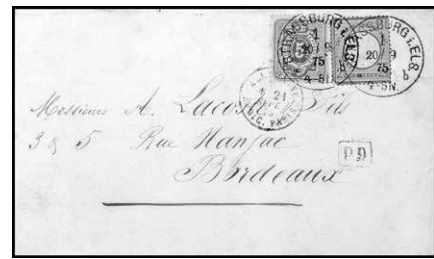 STRASSBURG i. ELS.
1
20/9
75
4-5N.
STRASSBURG i. ELS.
1
20/9
75
b
4-5N.
21
SEPT
PARIS
Messieurs A. Lacoste Fils
3 & 5 Rue Nanjac
Bordeaux
P.D